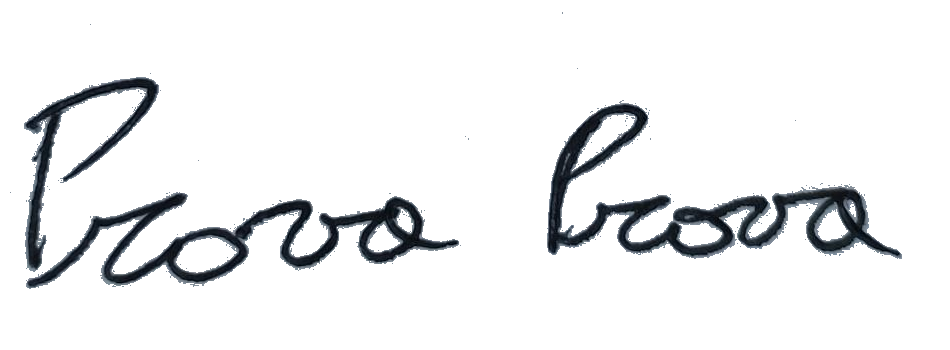 Prova Prova